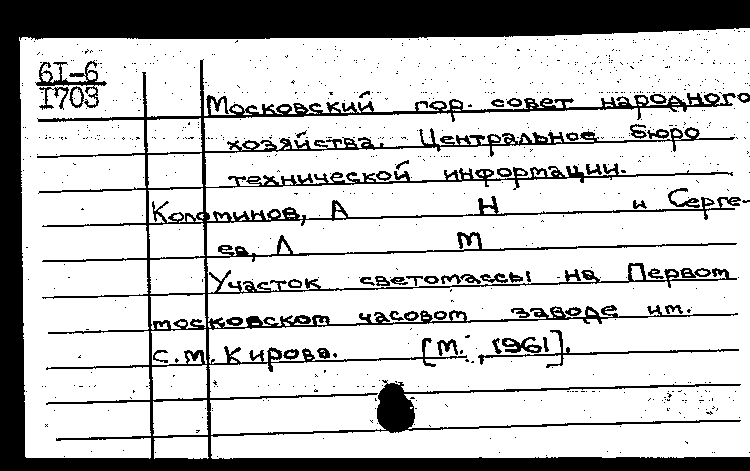 61-6
1703
Московский гор. совет народного
хозяйства. Центральное бюро
технической информации.
Коломинов, А Н и Серге-
ев, Л М
Участок светомассы на Первом
московском часовом заводе им.
С.М. Кирова. [М., 1961].